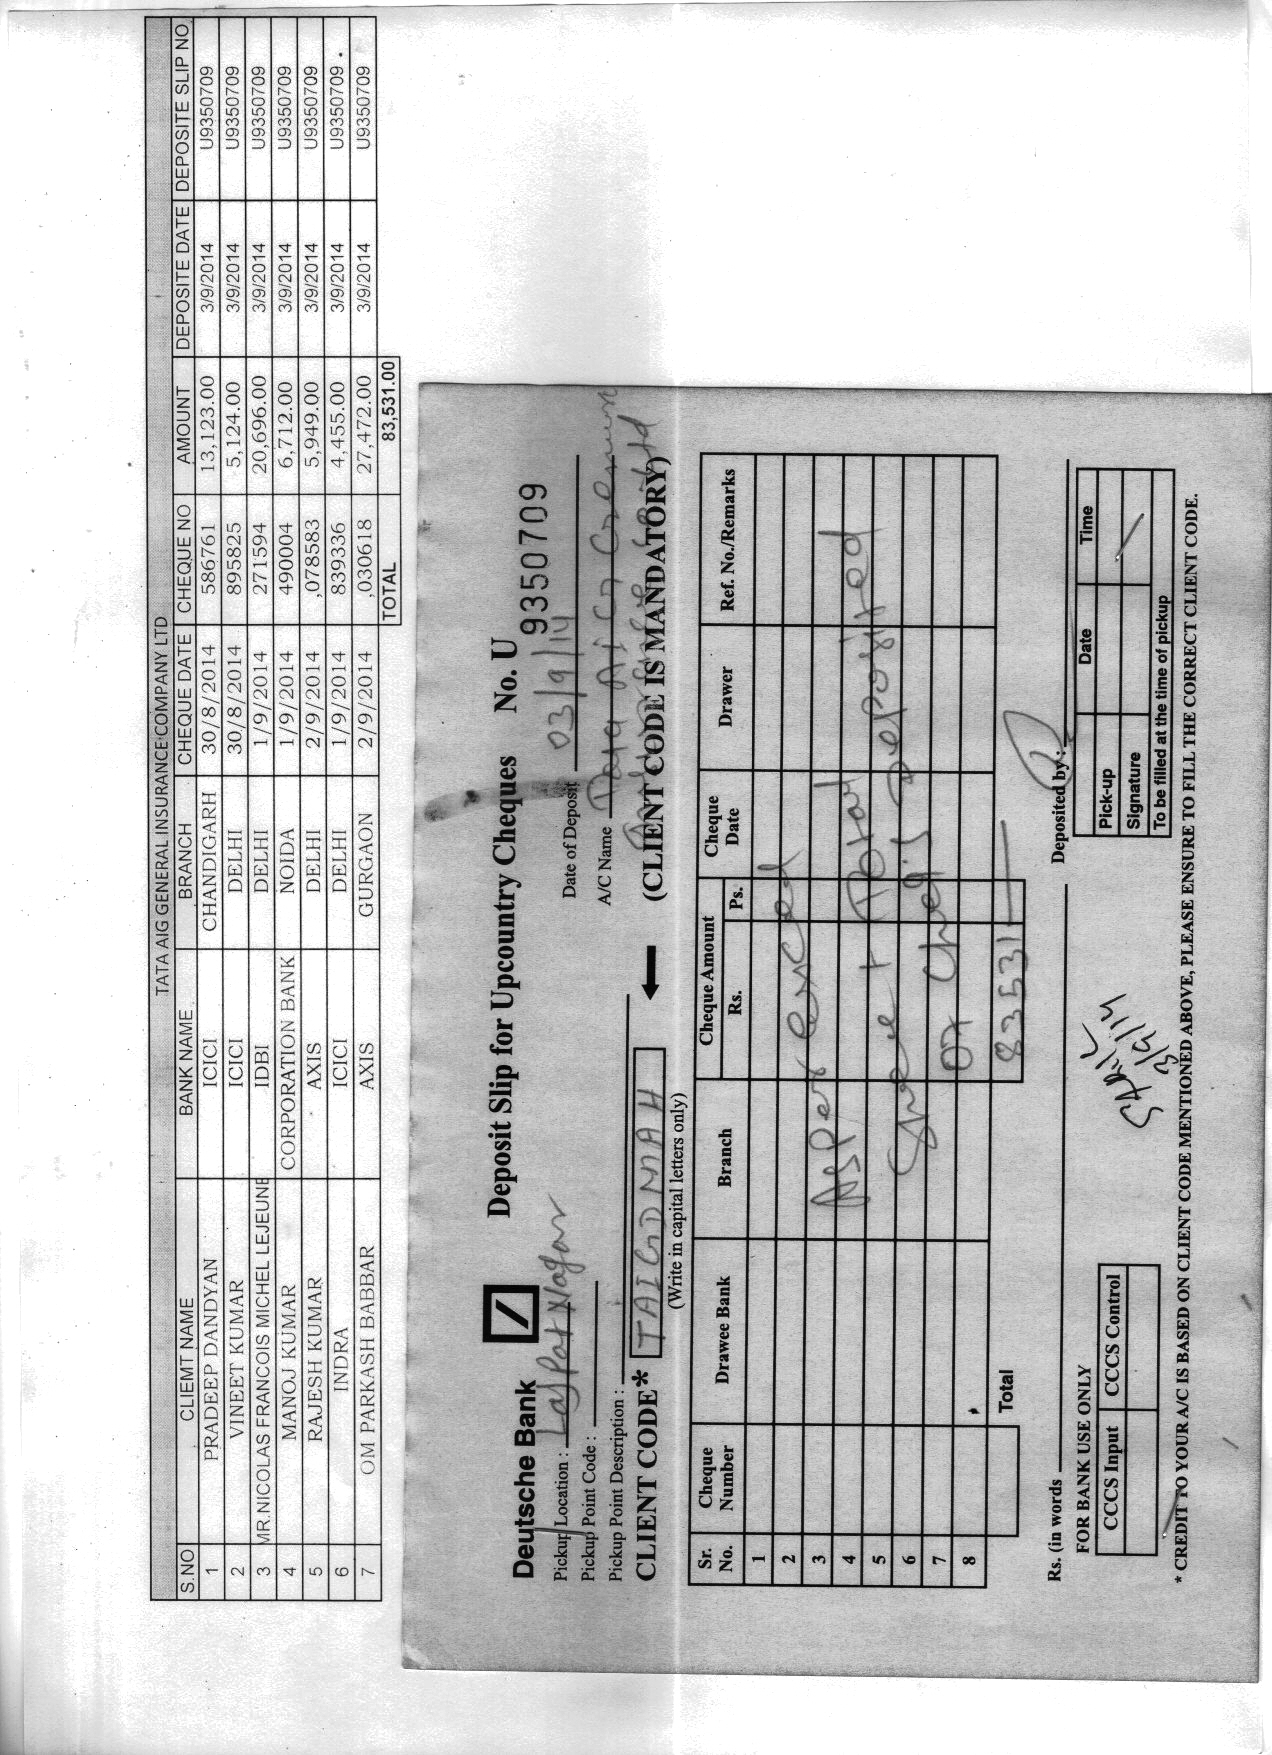 TATA AIG GENERAL INSURANCE COMPANY LTD
S.NO CLIEMT NAME BANK NAME BRANCH CHEQUE DATE CHEQUE NO AMOUNT DEPOSITE DATE DEPOSITE SLIP NO
1 PRADEEP DANDYAN ICICI CHANDIGARH 30/8/2014 586761 13,123.00 3/9/2014 U9350709
2 VINEET KUMAR ICICI DELHI 30/8/2014 895825 5,124.00 3/9/2014 U9350709
3 MR.NICOLAS FRANCOIS MICHEL LEJEUNE IDBI DELHI 1/9/2014 271594 20,696.00 3/9/2014 U9350709
4 MANOJ KUMAR CORPORATION BANK NOIDA 1/9/2014 490004 6,712.00 3/9/2014 U9350709
5 RAJESH KUMAR AXIS DELHI 2/9/2014 ,078583 5,949.00 3/9/2014 U9350709
6 INDRA ICICI DELHI 1/9/2014 839336 4,455.00 3/9/2014 U9350709
7 OM PARKASH BABBAR AXIS GURGAON 2/9/2014 ,030618 27,472.00 3/9/2014 U9350709
TOTAL 83,531.00
Deutsche Bank Deposit Slip for Upcountry Cheques No. U 9350709
Pickup Location : Lajpat Nagar Date of Deposit 03/9/14
Pickup Point Code : A/C Name Tata AIG General
Pickup Point Description :
CLIENT CODE* TAIGDMAH (CLIENT CODE IS MANDATORY)
(Write in capital letters only)
Sr. No. Cheque Number Drawee Bank Branch Cheque Amount Rs. Ps. Cheque Date Drawer Ref. No./Remarks
1
2
3
4
5
6
7
8
As Per enclosed
Sheet Total
07 Deposited
Total 83531
Rs. (in words Deposited by :
FOR BANK USE ONLY
CCCS Input CCCS Control
3/9/14
Pick-up Date Time
Signature
To be filled at the time of pickup
* CREDIT TO YOUR A/C IS BASED ON CLIENT CODE MENTIONED ABOVE, PLEASE ENSURE TO FILL THE CORRECT CLIENT CODE.